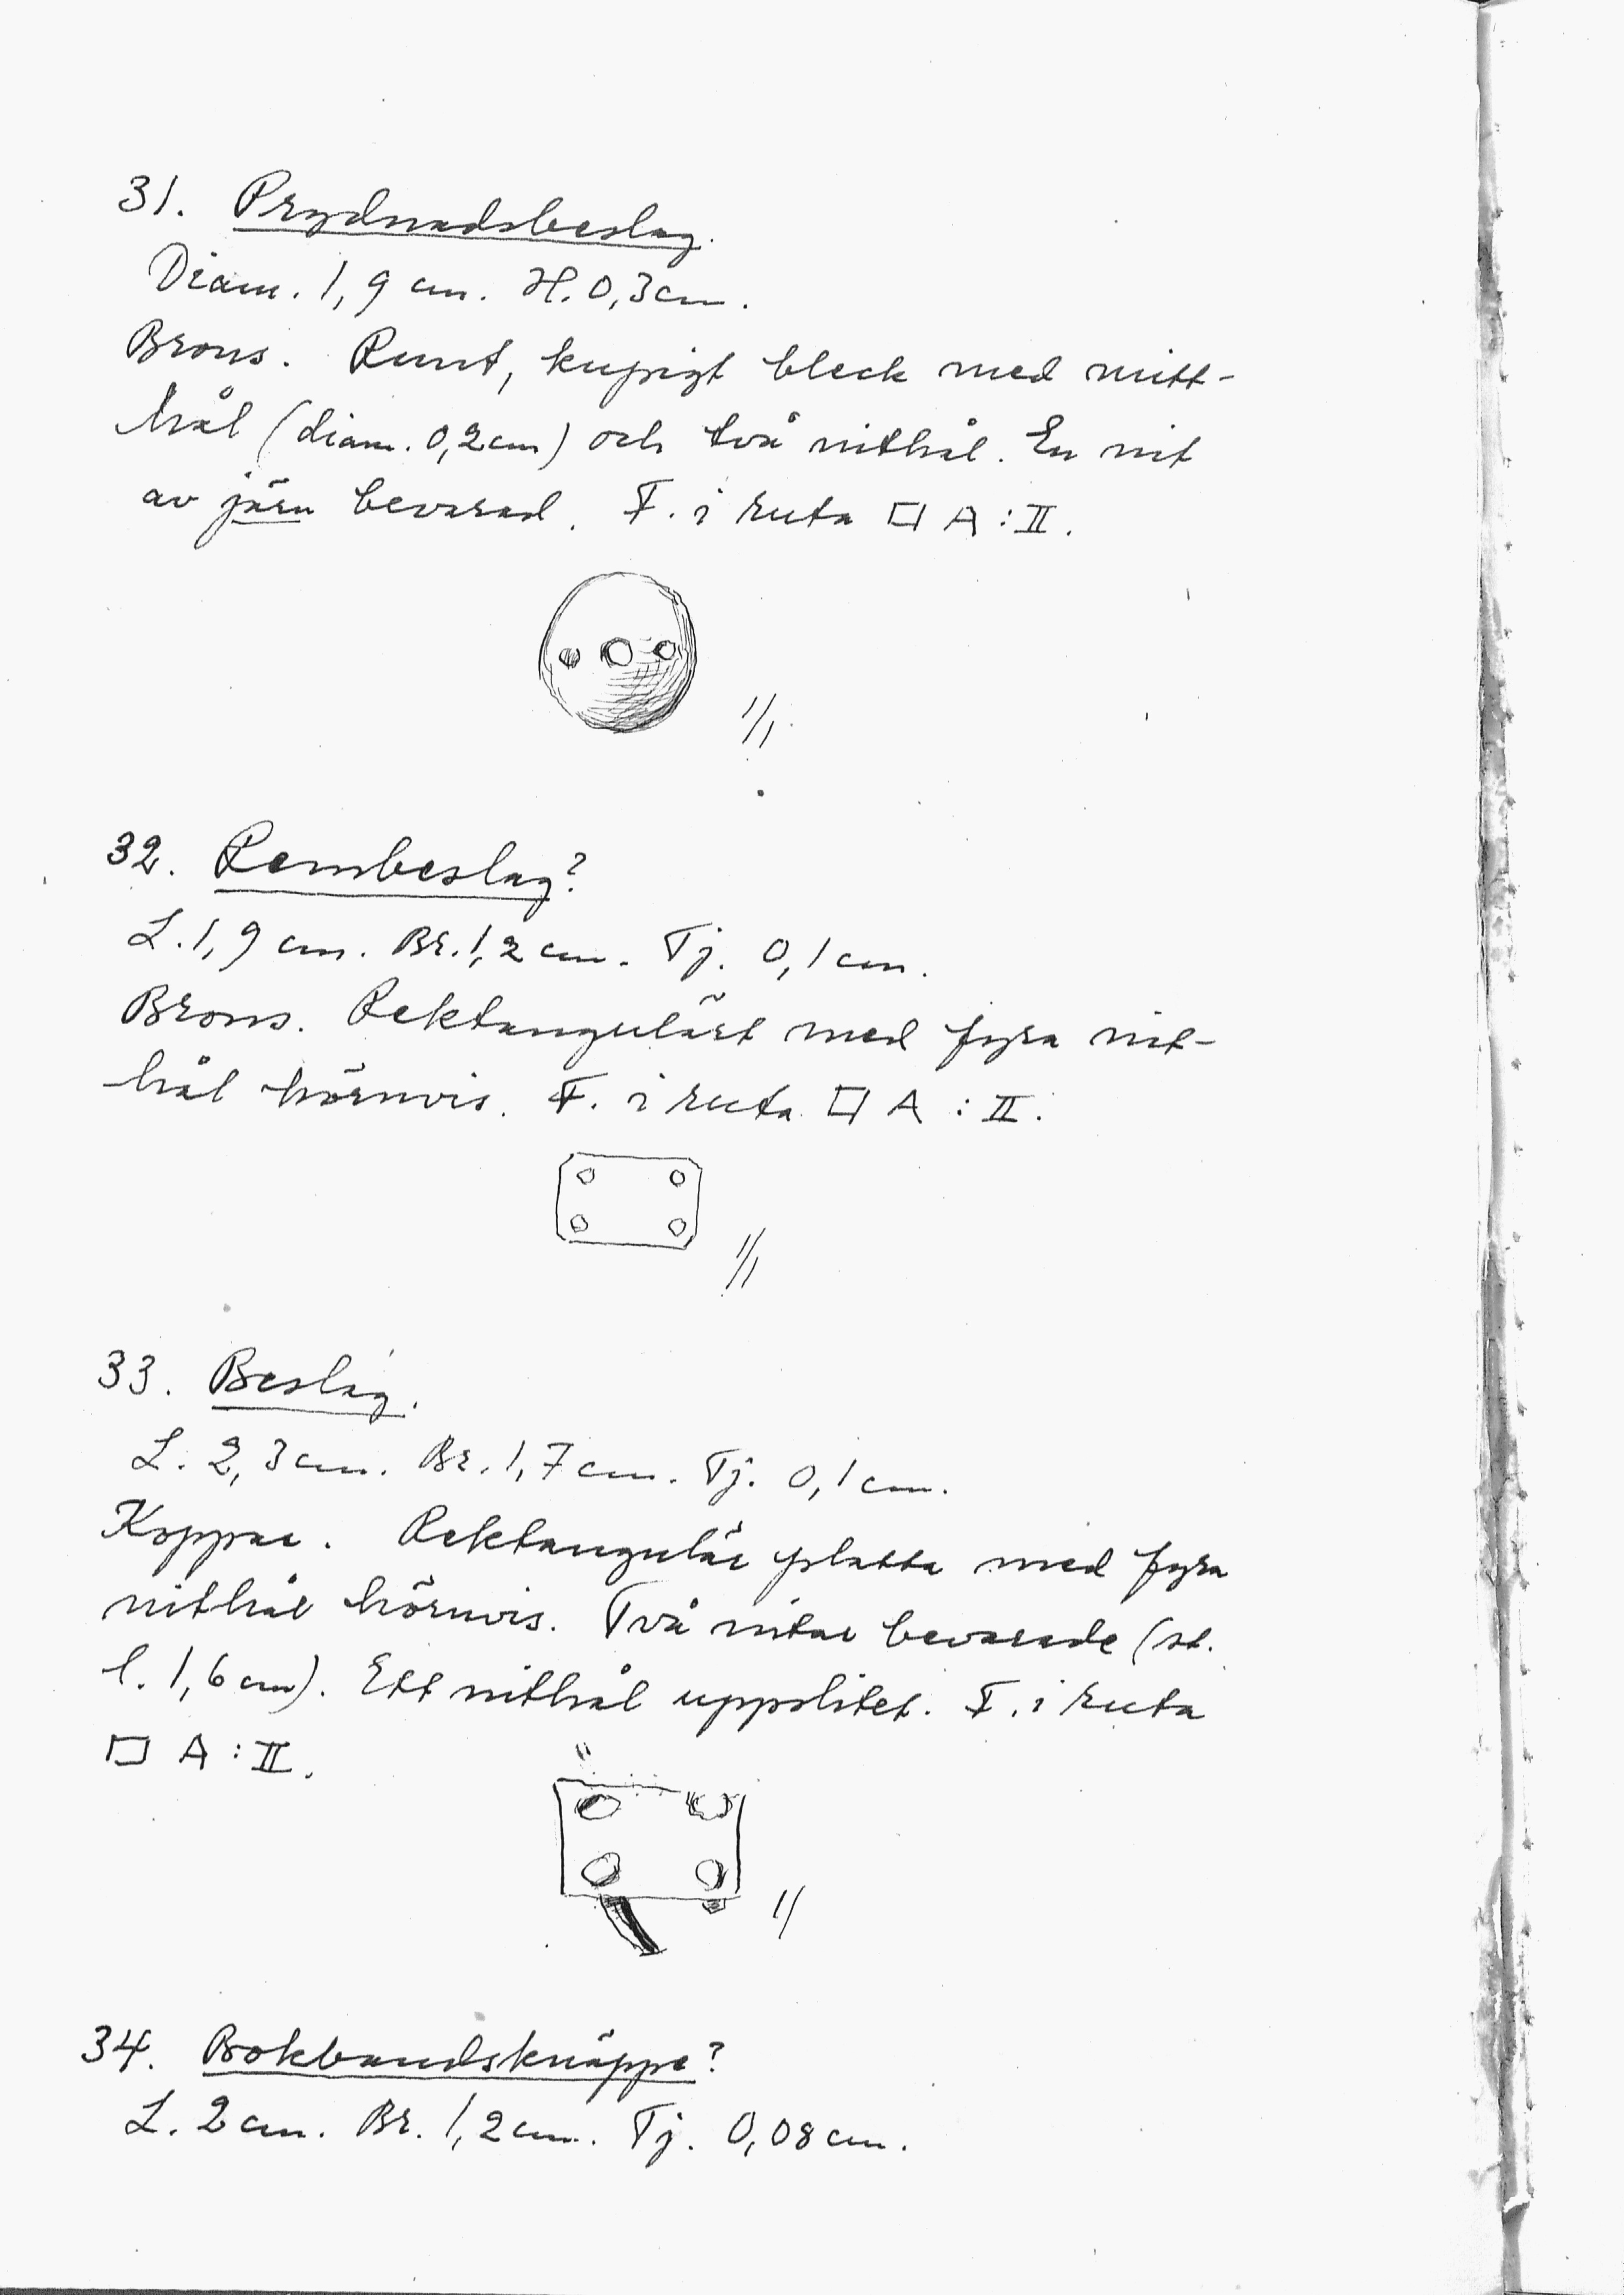 31. Prydnadsbeslag.
Diam. 1,9 cm. H. 0,3 cm.
Brons. Runt, kupigt bleck med mitt-
hål (diam. 0,2 cm) och två nithål. En nit
av järn bevarad. F. i ruta □ A : II.
1/1
32. Rembeslag?
L. 1,9 cm. Br. 1,2 cm. Tj. 0,1 cm.
Brons. Rektangulärt med fyra nit-
hål hörnvis. F. i ruta □ A : II.
1/1
33. Beslag.
L. 2,3 cm. Br. 1,7 cm. Tj. 0,1 cm.
Koppar. Rektangulär platta med fyra
nithål hörnvis. Två nitar bevarade (st.
l. 1,6 cm). Ett nithål uppslitet. F. i ruta
□ A : II.
1/
34. Bokbandsknäppe?
L. 2 cm. Br. 1,2 cm. Tj. 0,08 cm.